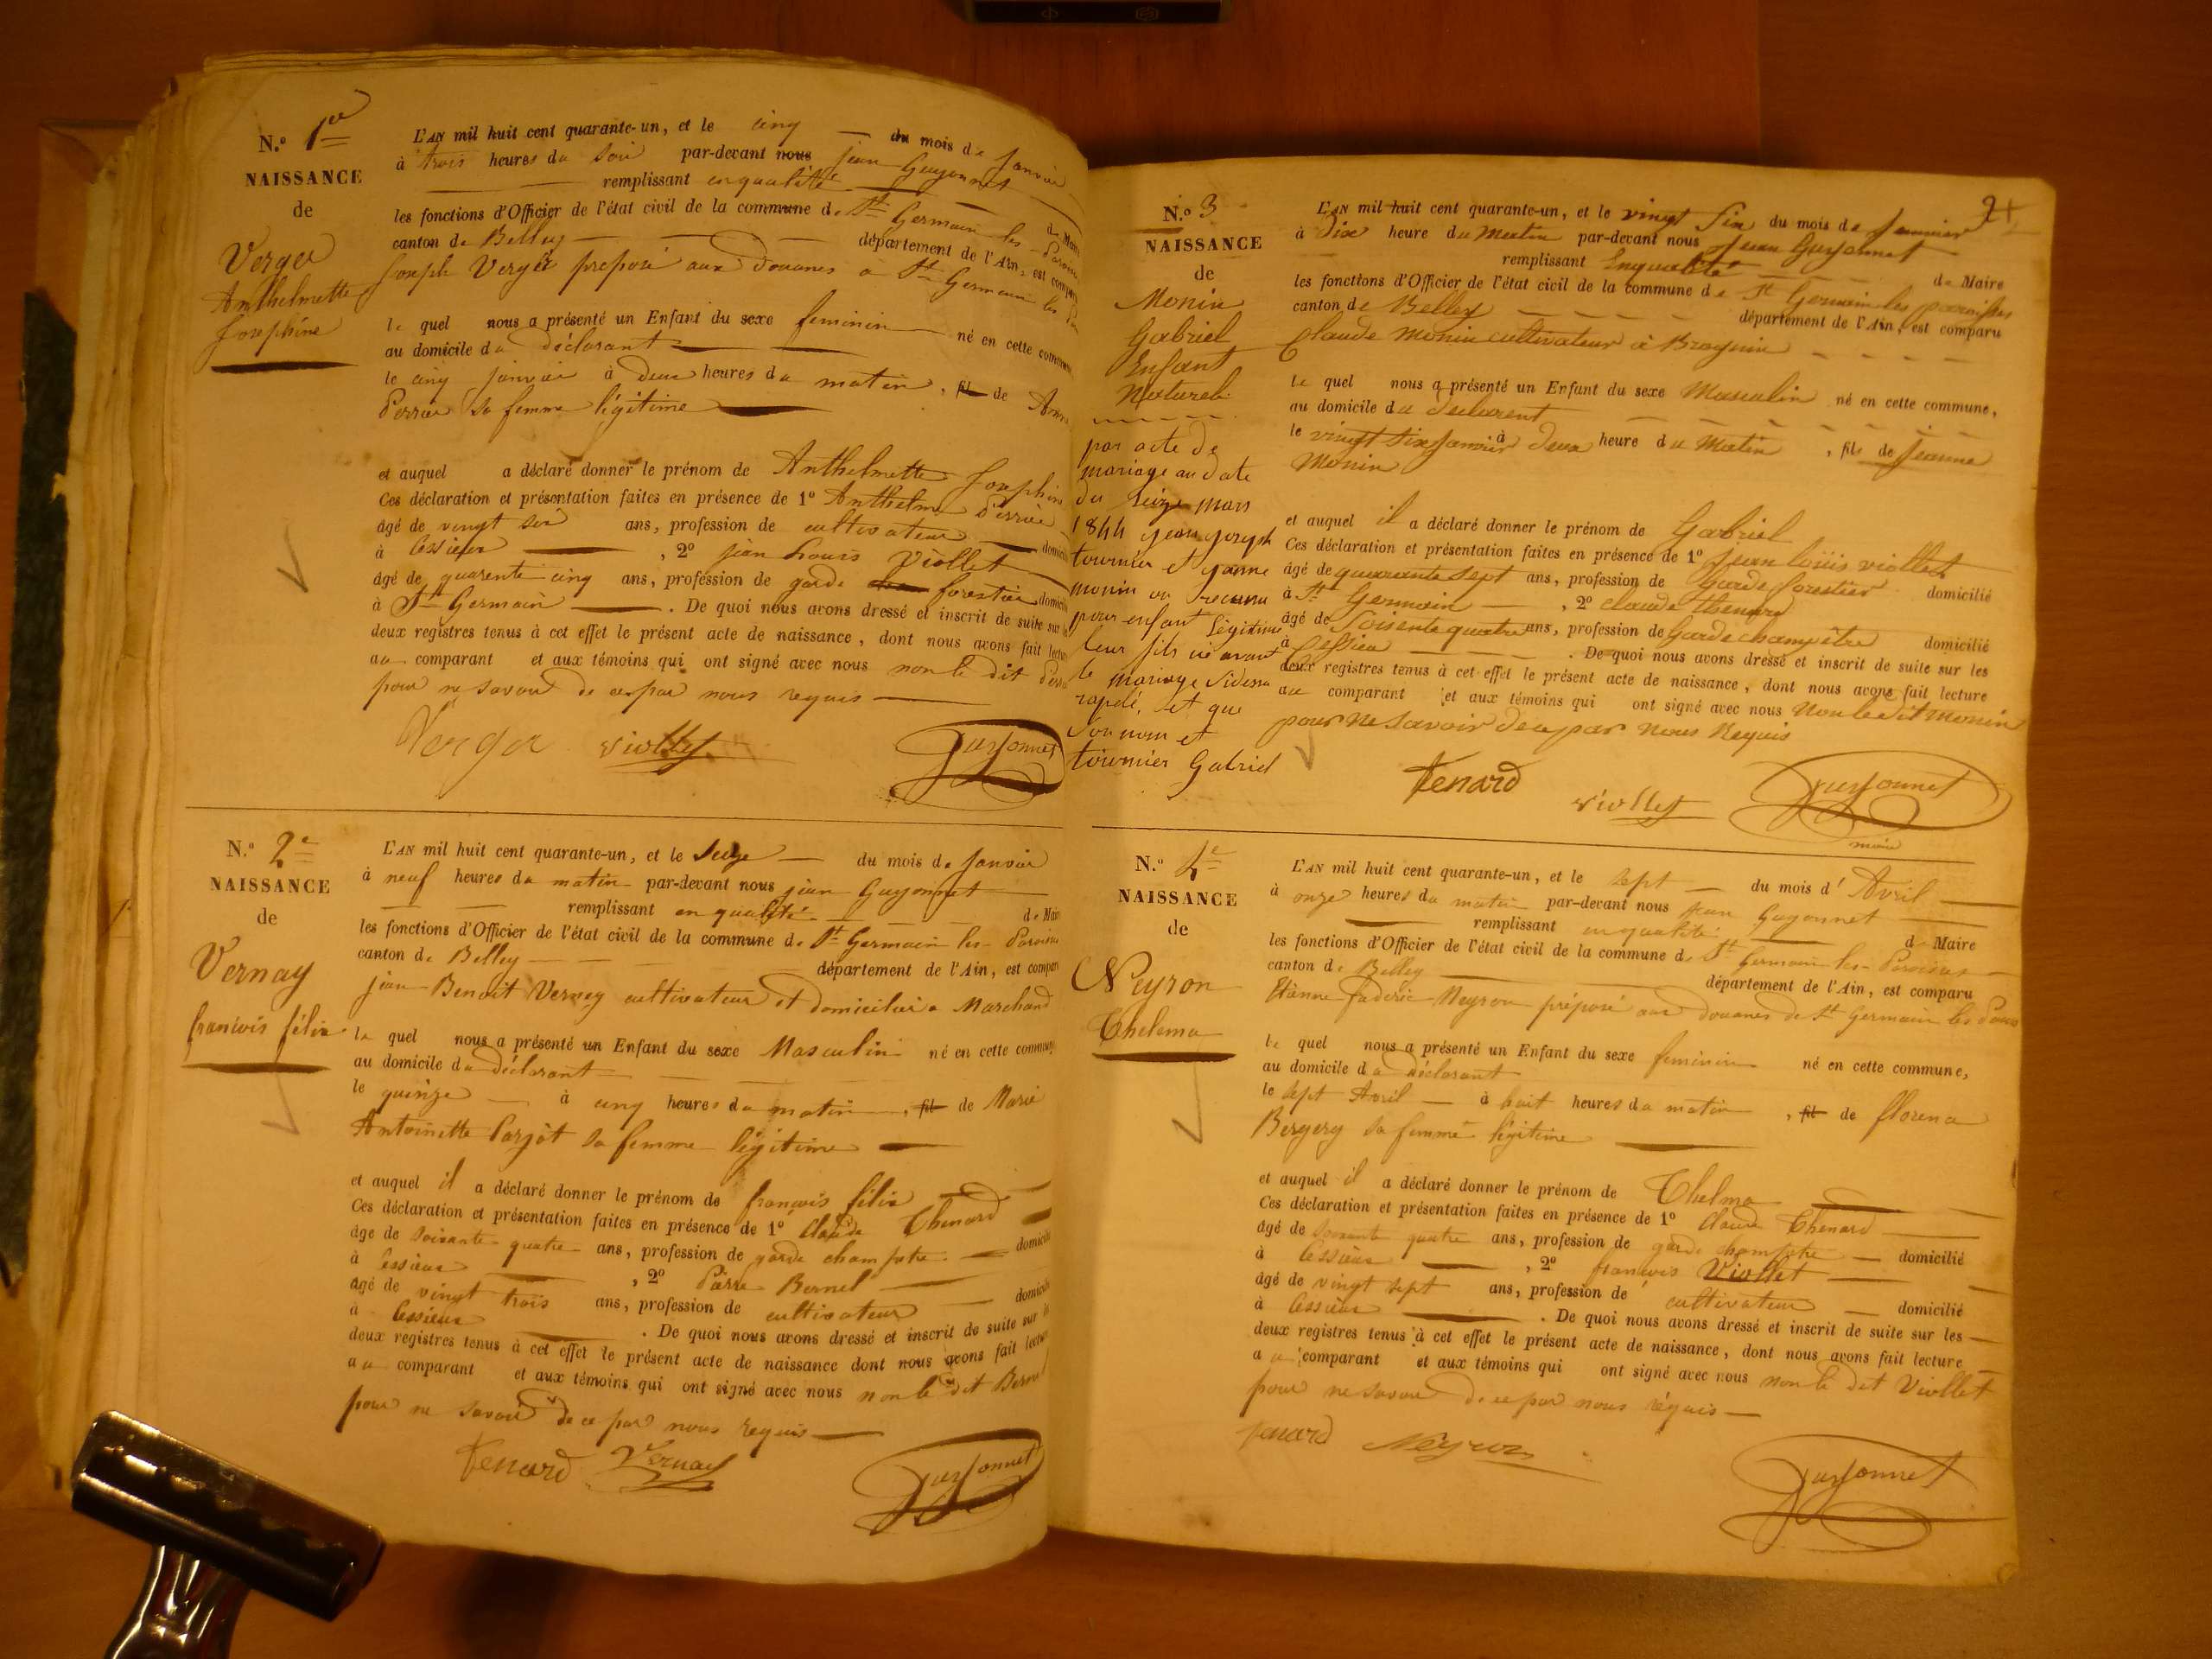 N.º 1er
NAISSANCE
de
Verger
Anthelmette
Josephine
L'AN mil huit cent quarante-un, et le cinq du mois de Janvier
à trois heures du soir par-devant nous jean Guyonnet
remplissant en qualité de Maire
les fonctions d'Officier de l'état civil de la commune de St Germain les Paroisses
canton de Belley département de l'Ain, est comparu
Joseph Verger préposé aux douanes a St Germain les
le quel nous a présenté un Enfant du sexe feminin né en cette commune
au domicile du déclarant
le cinq janvier à deux heures du matin, fil de Anne
Perrier sa femme légitime
et auquel a déclaré donner le prénom de Anthelmette Josephine
Ces déclaration et présentation faites en présence de 1º Anthelme Perrier
âgé de vingt six ans, profession de cultivateur domicilié
à Cessieux, 2º jean Louis Viollet
âgé de quarente cinq ans, profession de garde forestier domicilié
à St Germain. De quoi nous avons dressé et inscrit de suite sur les
deux registres tenus à cet effet le présent acte de naissance, dont nous avons fait lecture
au comparant et aux témoins qui ont signé avec nous non le dit
pour ne savoir de ce par nous requis
Verger viollet Guyonnet
N.º 2e
NAISSANCE
de
Vernay
francois félix
L'AN mil huit cent quarante-un, et le seize du mois de Janvier
à neuf heures du matin par-devant nous jean Guyonnet
remplissant en qualité de Maire
les fonctions d'Officier de l'état civil de la commune de St Germain les Paroisses
canton de Belley département de l'Ain, est comparu
jean Benoit Verney cultivateur et domicilier a Marchand
le quel nous a présenté un Enfant du sexe Masculin né en cette commune
au domicile du déclarant
le quinze à cinq heures du matin, fil de Marie
Antoinette Carjot sa femme légitime
et auquel il a déclaré donner le prénom de francois félix
Ces déclaration et présentation faites en présence de 1º Claude Thenard
âge de soixante quatre ans, profession de garde champetre domicilié
à Cessieux, 2º Pierre Bernel
âgé de vingt trois ans, profession de cultivateur domicilié
à Cessieux. De quoi nous avons dressé et inscrit de suite sur les
deux registres tenus à cet effet le présent acte de naissance dont nous avons fait lecture
au comparant et aux témoins qui ont signé avec nous non le dit Bernel
pour ne savoir de ce par nous requis
Tenard Vernay Guyonnet
N.º 3
NAISSANCE
de
Monin
Gabriel
Enfant
Naturel
par acte de
mariage au date
du seize mars
1844 jean joseph
tournier et janne
monin on reconnu
pour enfant légitime
leur fils né avant
le mariage sidessu
rapelé, et que
son nom et
tournier Gabriel
L'AN mil huit cent quarante-un, et le vingt six du mois de Janvier
à dix heure du matin par-devant nous Jean Guyonnet
remplissant Enqualité de Maire
les fonctions d'Officier de l'état civil de la commune de St Germain les paroisses
canton de Belley département de l'Ain, est comparu
Claude Monin cultivateur à Brognin
le quel nous a présenté un Enfant du sexe Masculin né en cette commune,
au domicile du declarent
le vingt six janvier à deux heure du Matin, fils de Jeanne
Monin
et auquel il a déclaré donner le prénom de Gabriel
Ces déclaration et présentation faites en présence de 1º Jean loüis viollet
âgé de quarante sept ans, profession de Garde forestier domicilié
à St Germain, 2º claude thenard
âgé de Soisente quatre ans, profession de Garde champêtre domicilié
à Cessieu. De quoi nous avons dressé et inscrit de suite sur les
deux registres tenus à cet effet le présent acte de naissance, dont nous avons fait lecture
au comparant et aux témoins qui ont signé avec nous Non le dit monin
pour ne savoir de ce par nous Requis
Tenard viollet Guyonnet
maire
N.º 4e
NAISSANCE
de
Neyron
Thelema
L'AN mil huit cent quarante-un, et le sept du mois d' Avril
à onze heures du matin par-devant nous jean Guyonnet
remplissant en qualité de Maire
les fonctions d'Officier de l'état civil de la commune de St Germain les Paroisses
canton de Belley département de l'Ain, est comparu
Etienne fréderic Neyron préposé aux douanes de St Germain les Paroisses
le quel nous a présenté un Enfant du sexe feminin né en cette commune,
au domicile du déclarant
le sept Avril à huit heures du matin, fil de florena
Bergery sa femme légitime
et auquel il a déclaré donner le prénom de Thelma
Ces déclaration et présentation faites en présence de 1º Claude Thenard
âgé de soixante quatre ans, profession de garde champetre domicilié
à Cessieux, 2º francois Viollet
âgé de vingt sept ans, profession de cultivateur domicilié
à Cessieux. De quoi nous avons dressé et inscrit de suite sur les
deux registres tenus à cet effet le présent acte de naissance, dont nous avons fait lecture
au comparant et aux témoins qui ont signé avec nous non le dit Viollet
pour ne savoir de ce par nous réquis
Tenard Neyron Guyonnet